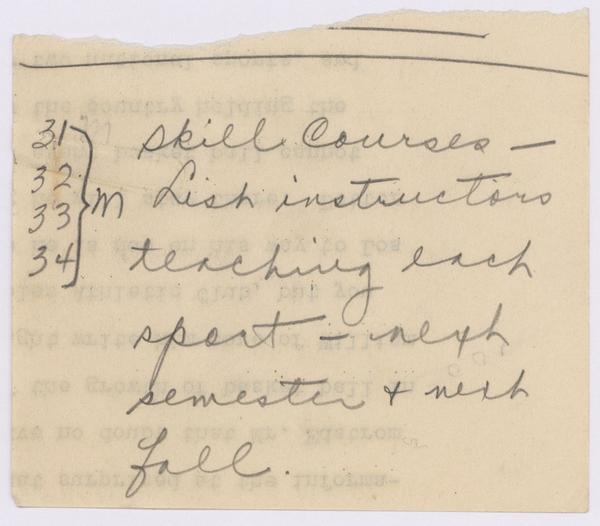 31
32
33
34
} M
Skill Courses -
List instructors
teaching each
sport - next
semester & next
fall.